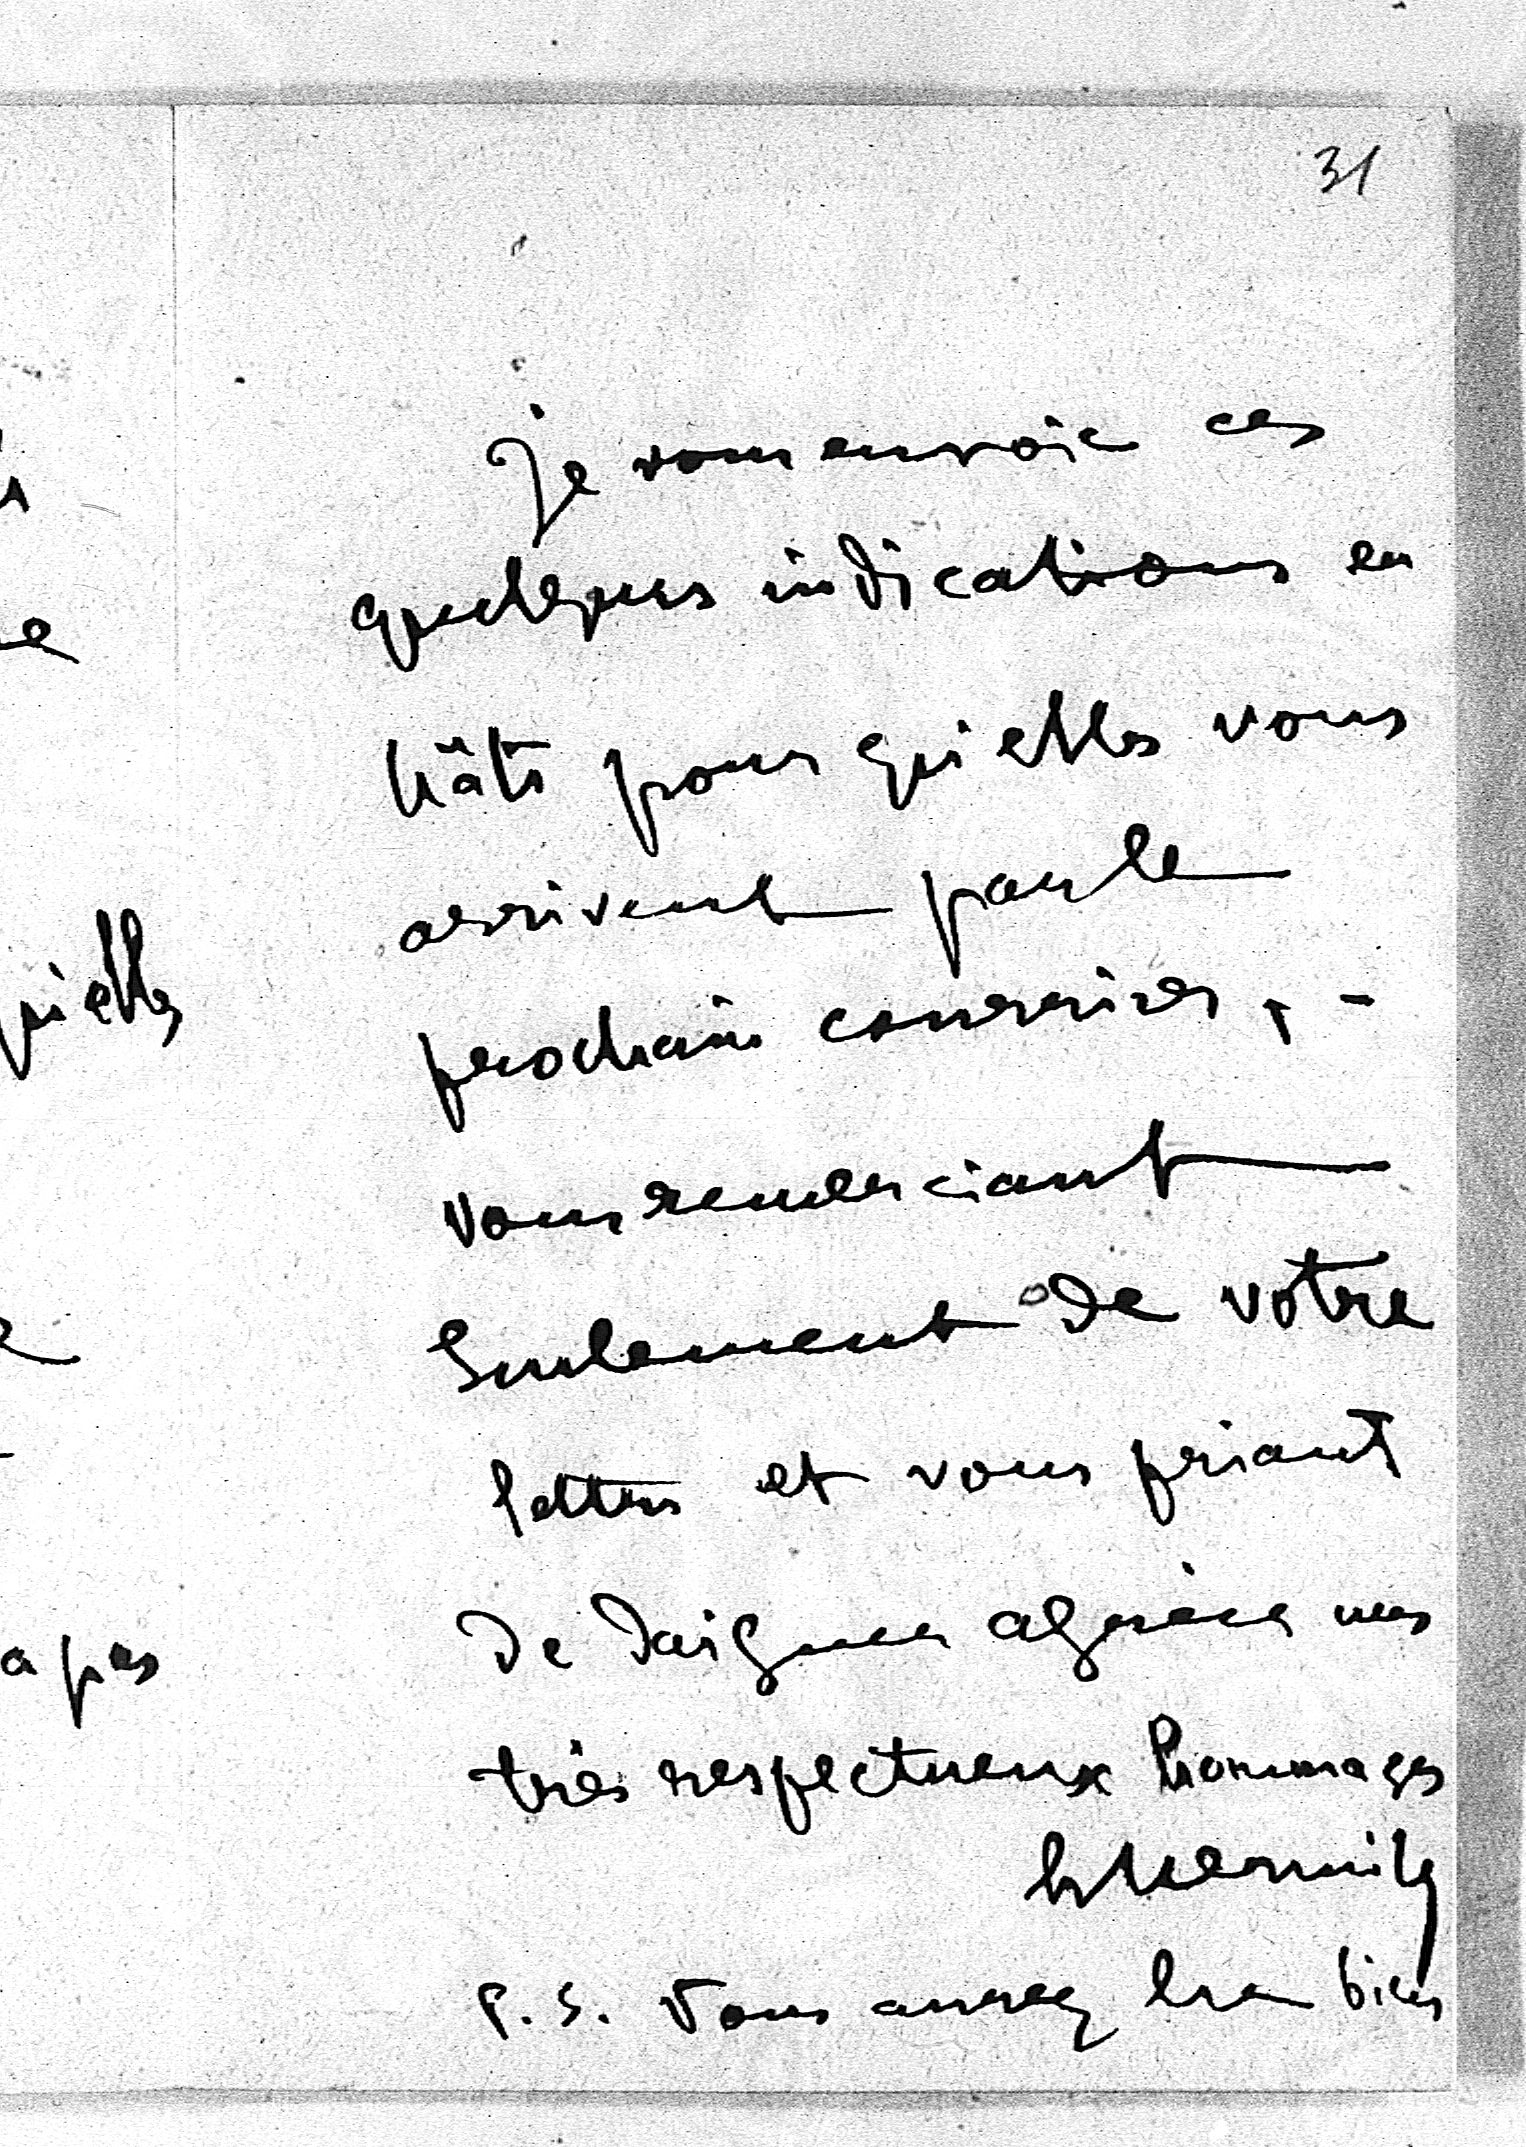 31
Je vous envoie ces
quelques indications en
hâte pour qu'elles vous
arrivent par le
prochain courrier, -
vous remerciant
seulement de votre
lettre et vous priant
de daigner agréer mes
très respectueux hommages
P.S. Vous aurez lu bien
qu'elles
a pas